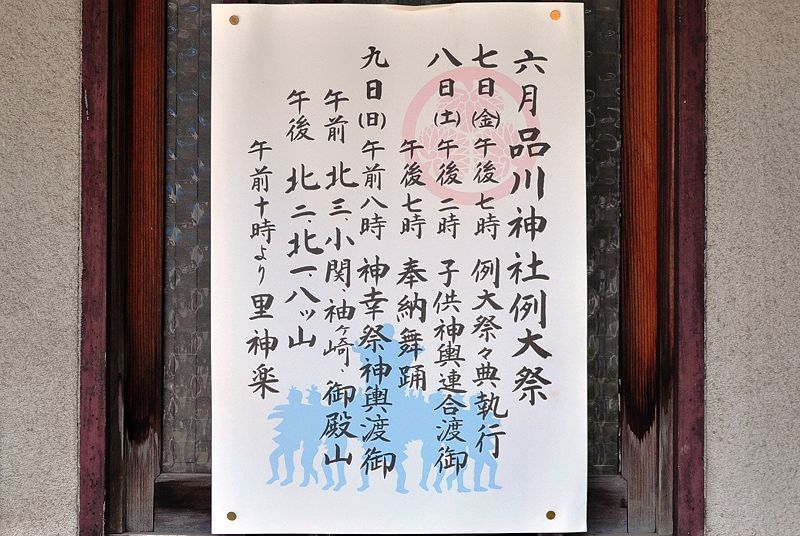 六月品川神社例大祭
七日(金)午後七時 例大祭々典執行
八日(土)午後二時 子供神輿連合渡御
午後七時 奉納舞踊
九日(日)午前八時 神幸祭神輿渡御
午前 北三、小関、袖ヶ崎、御殿山
午後 北二、北一、八ッ山
午前十時より 里神楽